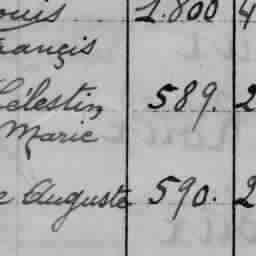 ouis 1.800 4
rançois
Célestin 589. 2
Marie
e Auguste 590. 2